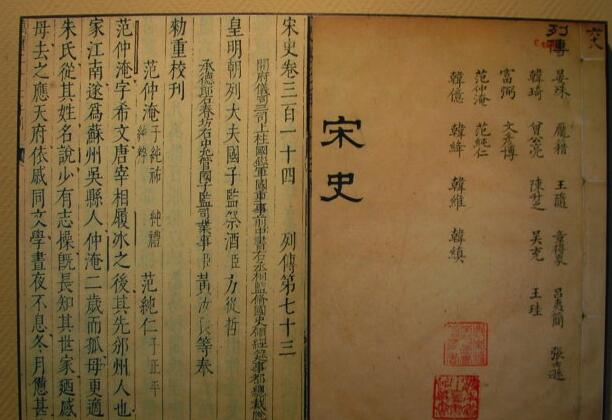 六八
列傳
晏殊 龐籍 王隨 章得象 呂夷簡 張士遜
韓琦 曾公亮 陳升之 吳充 王珪
富弼 文彥博
范仲淹 范純仁
韓億 韓絳 韓維 韓縝
宋史
宋史卷三百一十四 列傳第七十三
開府儀同三司上柱國錄軍國重事前中書右丞相監修國史領經筵事都總裁
皇明朝列大夫國子監祭酒臣方從哲
承德郎右春坊右中允管國子監司業事臣黃汝良等奉
勑重校刊
范仲淹 子純祐 純禮 純粹 范純仁 子正平
范仲淹字希文唐宰相履冰之後其先邠州人也
家江南遂爲蘇州吳縣人仲淹二歲而孤母更適
朱氏從其姓名說少有志操既長知其世家迺感
母去之應天府依戚同文學晝夜不息冬月憊甚